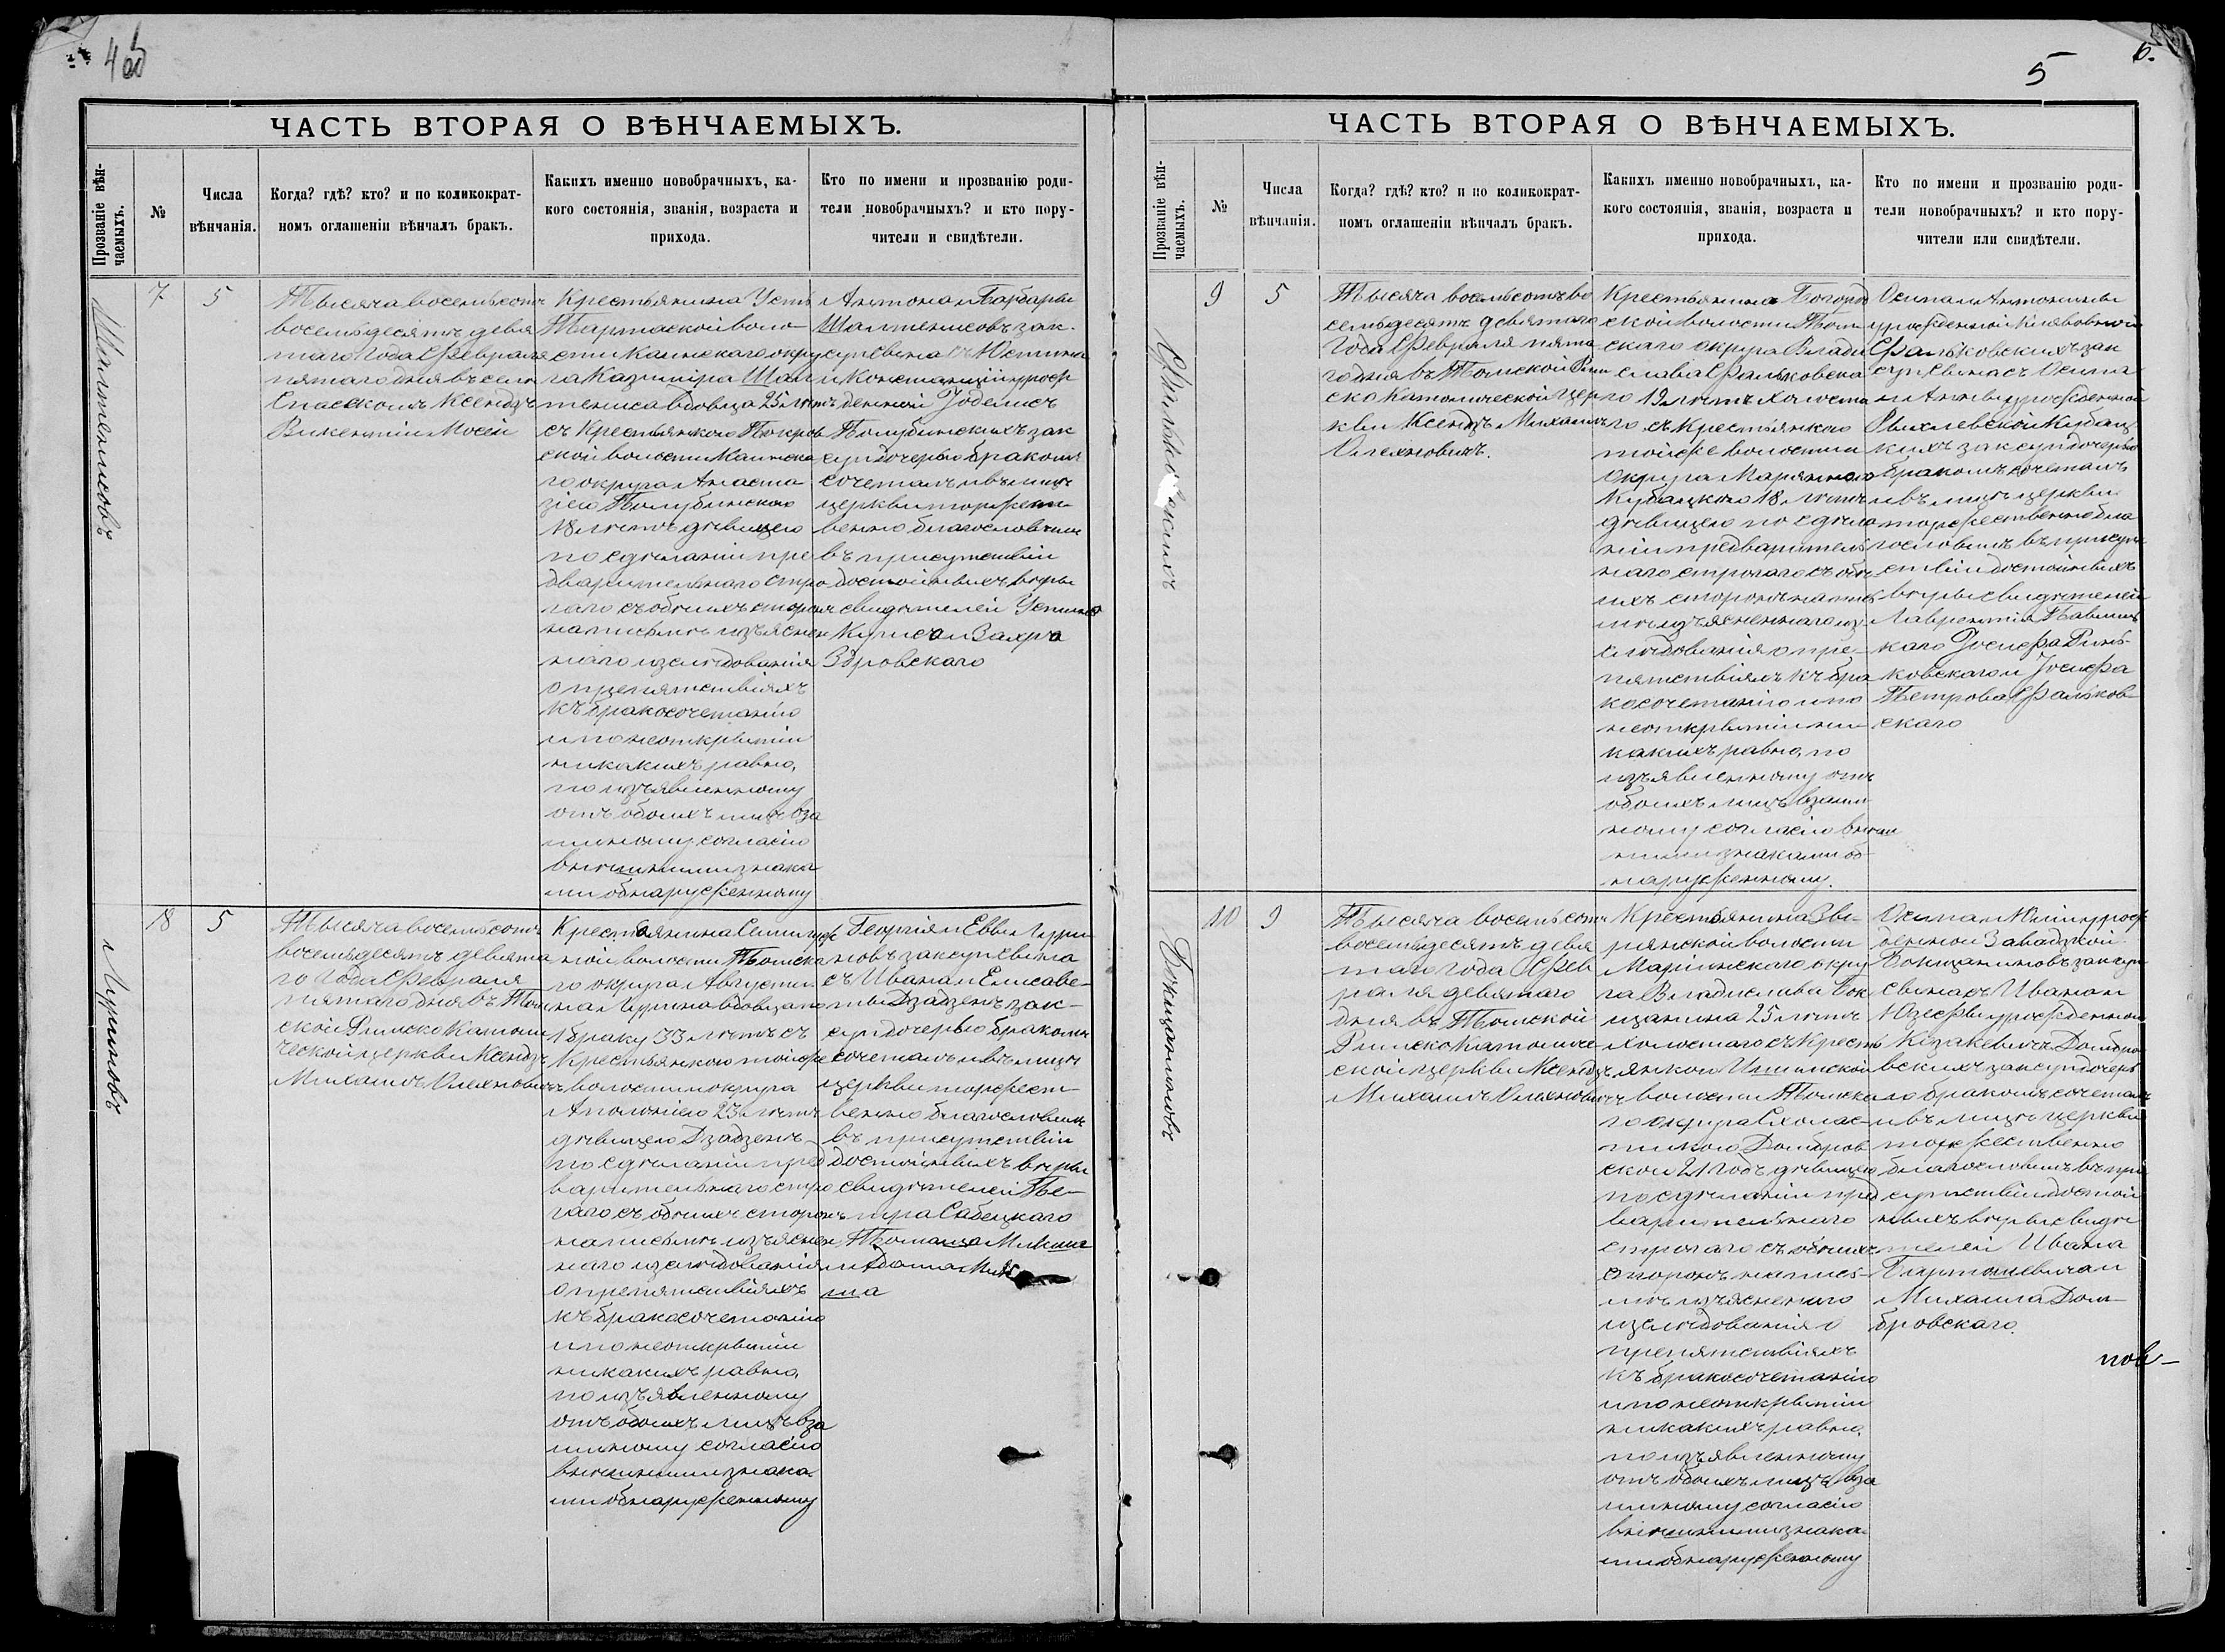 4об
ЧАСТЬ ВТОРАЯ О ВѢНЧАЕМЫХЪ.
Прозваніе вѣн-
чаемыхъ.
№
Числа
вѣнчанія.
Когда? гдѣ? кто? и по коликократ-
номъ оглашеніи вѣнчалъ бракъ.
Какихъ именно новобрачныхъ, ка-
кого состоянія, званія, возраста и
прихода.
Кто по имени и прозванію роди-
тели новобрачныхъ? и кто пору-
чители и свидѣтели.
7
5
Тысяча восемьсотъ
восемьдесятъ девя
таго Года Февраля
пятаго дня въ селѣ
Спасскомъ Ксендзъ
Викентій Мосей
Крестьянина Усть
Тартаской воло
сти Каинскаго окру
га Казимира Шал
тениса вдовца 25 лѣтъ
съ Крестьянкою Покров
ской волости Каинска
го округа Анаста
зіею Полубинскою
18 лѣтъ дѣвицею
по сдѣланіи пре
дварительнаго стро
гаго съ обѣихъ сторонъ
на письмѣ изъяснен
наго изслѣдованія
о препятствіяхъ
къ бракосочетанію
и по неоткрытіи
никакихъ равно,
по изъявленному
отъ обоихъ лицъ вза
имному согласію
внѣшними знака
ми обнаруженному
Антона и Барбары
Шалтенисовъ зак.
суп сына съ Юстина
и Констанціи урож
денной Іоделисъ
Полубинскихъ зак
суп дочерью бракомъ
сочеталъ и въ лицѣ
церкви торжест
венно благословилъ
въ присутствіи
достойныхъ вѣры
свидѣтелей Устина
Куписа и Захра
Здровскаго
8
5
Тысяча восемьсотъ
восемьдесятъ девята
го Года Февраля
пятаго дня въ Том
ской Римско Католи
ческой церкви Ксендзъ
Михаилъ Олехновичъ
Крестьянина Семилуж
ной волости Томска
го округа Августи
на Гурина вдовца по
1 браку 33 лѣтъ съ
Крестьянкою той же
волости и округа
Аполоніею 23 лѣтъ
дѣвицею Дзадзенъ
по сдѣланіи пред
варительнаго стро
гаго съ обѣихъ сторонъ
на письмѣ изъяснен
наго изслѣдованія
о препятствіяхъ
къ бракосочетанію
и по неоткрытіи
никакихъ равно,
по изъявленному
отъ обоихъ лицъ вза
имному согласію
внѣшними знака
ми обнаруженному
Георгія и Еввы Гури
новъ зак суп сына
съ Ивана и Елисаве
ты Дзадзенъ зак
суп дочерью бракомъ
сочеталъ и въ лицѣ
церкви торжест
венно благословилъ
въ присутствіи
достойныхъ вѣры
свидѣтелей Пе
тра Сабецкаго
Томаша
и Адама
ша
Шалтенисовъ
Гуриновъ
5
6.
ЧАСТЬ ВТОРАЯ О ВѢНЧАЕМЫХЪ.
Прозваніе вѣн-
чаемыхъ.
№
Числа
вѣнчанія.
Когда? гдѣ? кто? и по коликократ-
номъ оглашеніи вѣнчалъ бракъ.
Какихъ именно новобрачныхъ, ка-
кого состоянія, званія, возраста и
прихода.
Кто по имени и прозванію роди-
тели новобрачныхъ? и кто пору-
чители или свидѣтели.
9
5
Тысяча восемьсотъ во
семьдесятъ девятаго
Года Февраля пята
го дня въ Томской Рим
ско Католической Цер
кви Ксендзъ Михаилъ
Олехновичъ.
Крестьянина Богород
ской волости Том
скаго округа Влади
слава Фальковска
го 19 лѣтъ холоста
го съ Крестьянкою
той же волости и
округа Марянною
Кубацкою 18 лѣтъ
дѣвицею по сдѣла
ніи предваритель
наго строгаго съ обѣ
ихъ сторонъ на пись
мѣ изъясненнаго из
слѣдованія о пре
пятствіяхъ къ бра
косочетанію и по
неоткрытіи ни
какихъ равно, по
изъявленному отъ
обоихъ лицъ взаим
ному согласію внѣш
ними знаками об
наруженному.
Осипа и Антонины
урожденной
Фальковскихъ зак
суп сына съ Осипа
и Анны урожденной
Рыхлевской Кубац
кихъ зак суп дочерью
бракомъ сочеталъ
и въ лицѣ церкви
торжественно бла
гословилъ въ присут
ствіи достойныхъ
вѣры свидѣтелей
Лаврентія
каго Іосифа
ковскаго и Іосифа
Петрова Фальков
скаго
10
9
Тысяча восемьсотъ
восемьдесятъ девя
таго года Фев
раля девятаго
дня въ Томской
Римско Католиче
ской церкви Ксендзъ
Михаилъ Олехновичъ
Крестьянина Зы
рянской волости
Маріинскаго окру
га Владислава Бок
щанина 25 лѣтъ
холостаго съ Кресть
янкою Ишимской
волости Томска
го округа Схолас
тикою Домбров
ской 21 годъ дѣвицею
по сдѣланіи пред
варительнаго
строгаго съ обѣихъ
сторонъ на пись
мѣ изъясненнаго
изслѣдованія о
препятствіяхъ
къ бракосочетанію
и по неоткрытіи
никакихъ равно,
по изъявленному
отъ обоихъ лицъ вза
имному согласію
внѣшними знака
ми обнаруженному
Осипа и Юліи урож
денной Завадзкой
Бокщаниновъ зак суп
сына съ Ивана и
Юзефы урожденной
Казакевичъ Домбро
вскихъ зак суп дочерь
ю бракомъ сочеталъ
и въ лицѣ церкви
торжественно
благословилъ въ при
сутствіи достой
ныхъ вѣры свидѣ
телей Ивана
Барташевича и
Михаила Дом
бровскаго.
Фальковскихъ
Бокщаниновъ
пов-